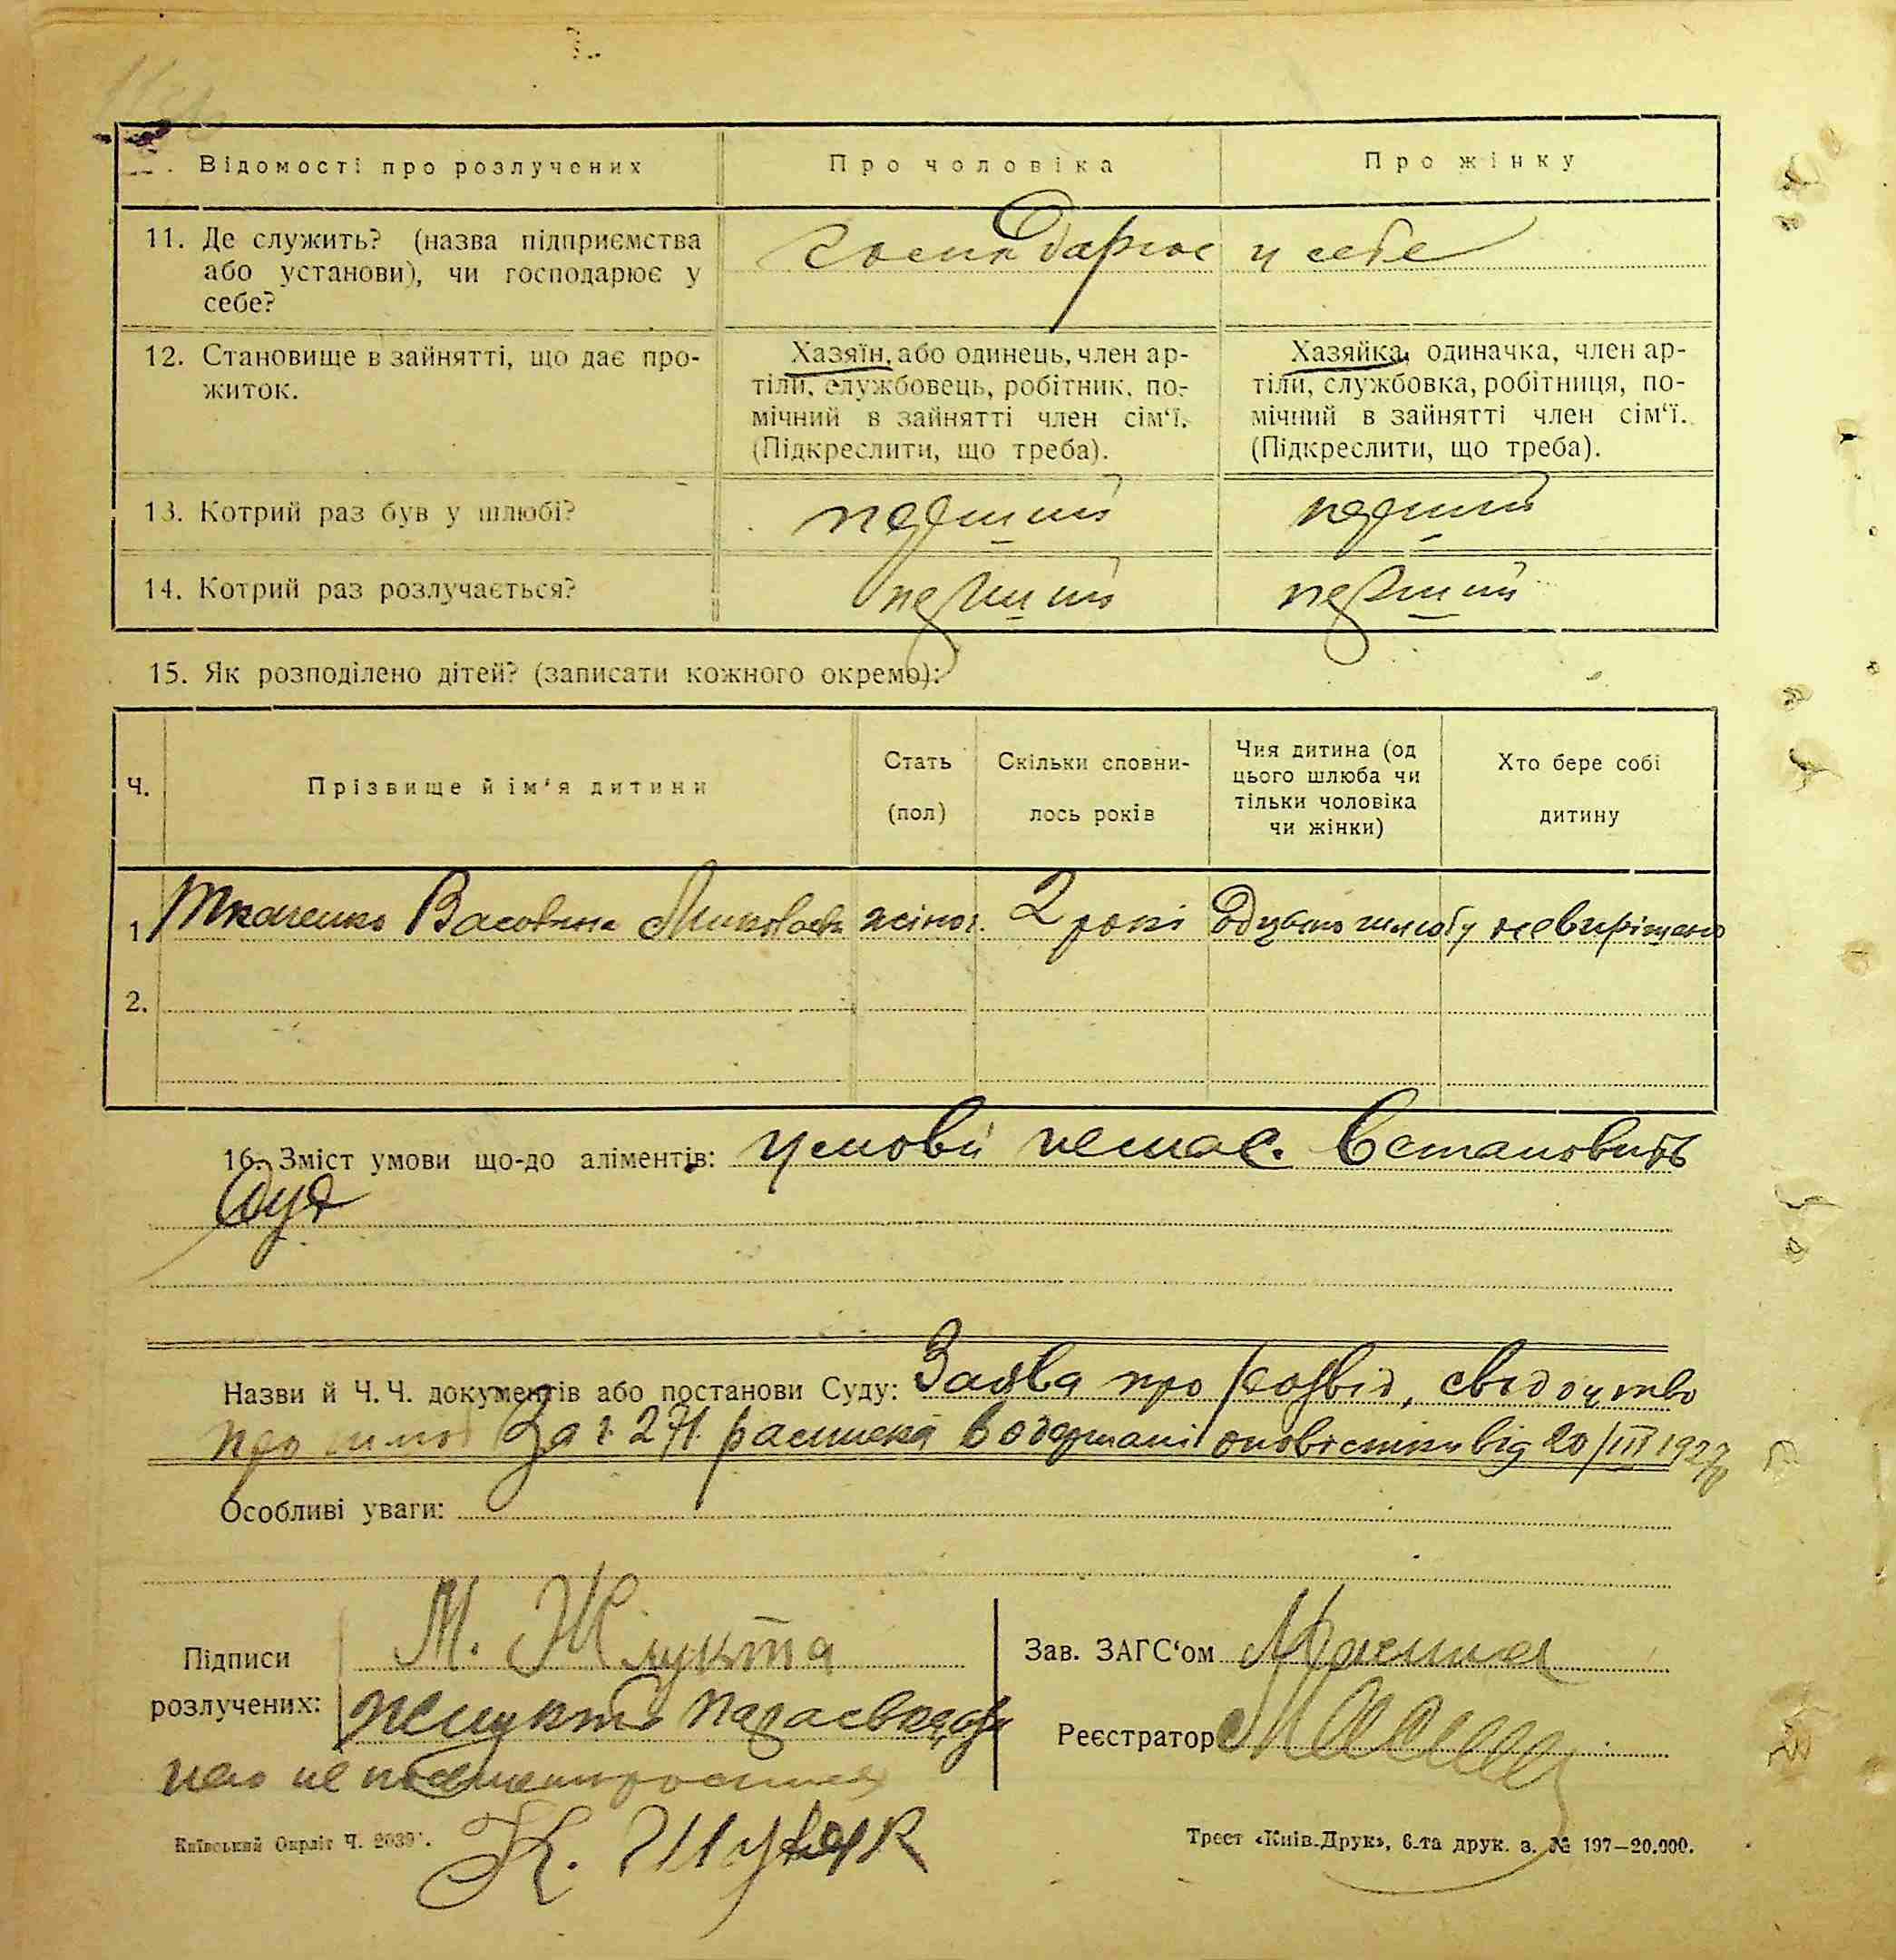 Відомості про розлучених
Про чоловіка
Про жінку
11. Де служить? (назва підприємства
або установи), чи господарює у
себе?
господарює у себе
12. Становище в зайнятті, що дає про-
житок.
Хазяїн, або одинець, член ар-
тіли, службовець, робітник, по-
мічний в зайнятті член сім‘ї.
(Підкреслити, що треба).
Хазяйка, одиначка, член ар-
тіли, службовка, робітниця, по-
мічний в зайнятті член сім‘ї.
(Підкреслити, що треба).
13. Котрий раз був у шлюбі?
перший
перший
14. Котрий раз розлучається?
перший
перший
15. Як розподілено дітей? (записати кожного окремо):
Ч.
Прізвище й ім'я дитини
Стать
(пол)
Скільки сповни-
лось років
Чия дитина (од
цього шлюба чи
тільки чоловіка
чи жінки)
Хто бере собі
дитину
1. Ткаченко жіноч. 2 роки од цього шлюбу не вирішено
2.
16. Зміст умови що-до аліментів: умови немає. Встановить
Суд
Назви й Ч.Ч. документів або постанови Суду: Заява про розвід, свідоцтво
про шлюб За г. 271. расписка в одержанні оповістки від 20/III 1927р
Особливі уваги:
Підписи
розлучених:
М. Жлукта
Жлукта Параска, а за
нею не письменною
К. Шуляк
Зав. ЗАГС‘ом
Реєстратор
Київський Окрліт Ч. 2039.
Трест «Київ-Друк», 6-та друк. з. № 197—20.000.